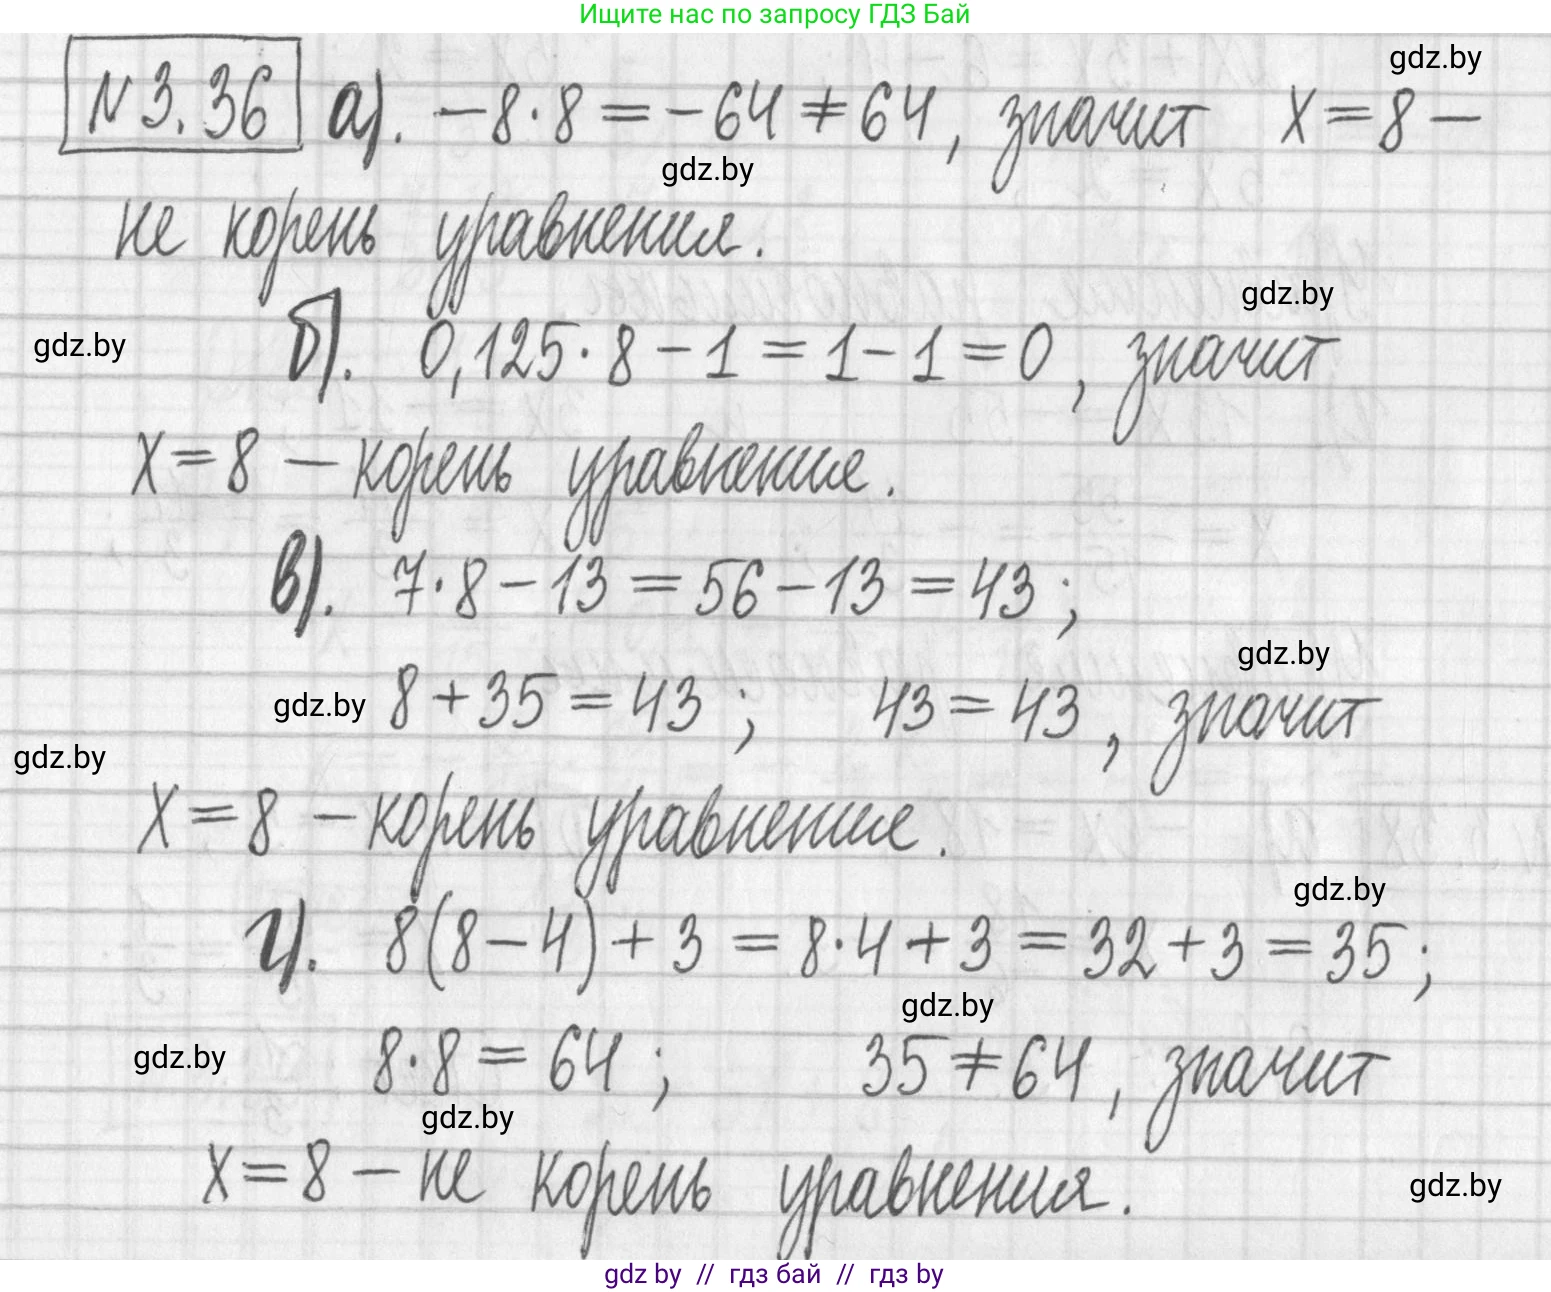 Ищите нас по запросу ГДЗ Бай
gdz.by
N 3.36 а). −8·8 = −64 ≠ 64, значит x=8 −
gdz.by
не корень уравнения.
gdz.by
gdz.by
б). 0,125·8 − 1 = 1 − 1 = 0, значит
x=8 − корень уравнение.
в). 7·8 − 13 = 56 − 13 = 43;
gdz.by
gdz.by 8 + 35 = 43; 43 = 43, значит
gdz.by
x=8 − корень уравнение.
gdz.by
г). 8(8 − 4) + 3 = 8·4 + 3 = 32 + 3 = 35;
gdz.by
gdz.by 8·8 = 64; 35 ≠ 64, значит
gdz.by
x=8 − не корень уравнения.
gdz.by
gdz by // гдз бай // гдз by